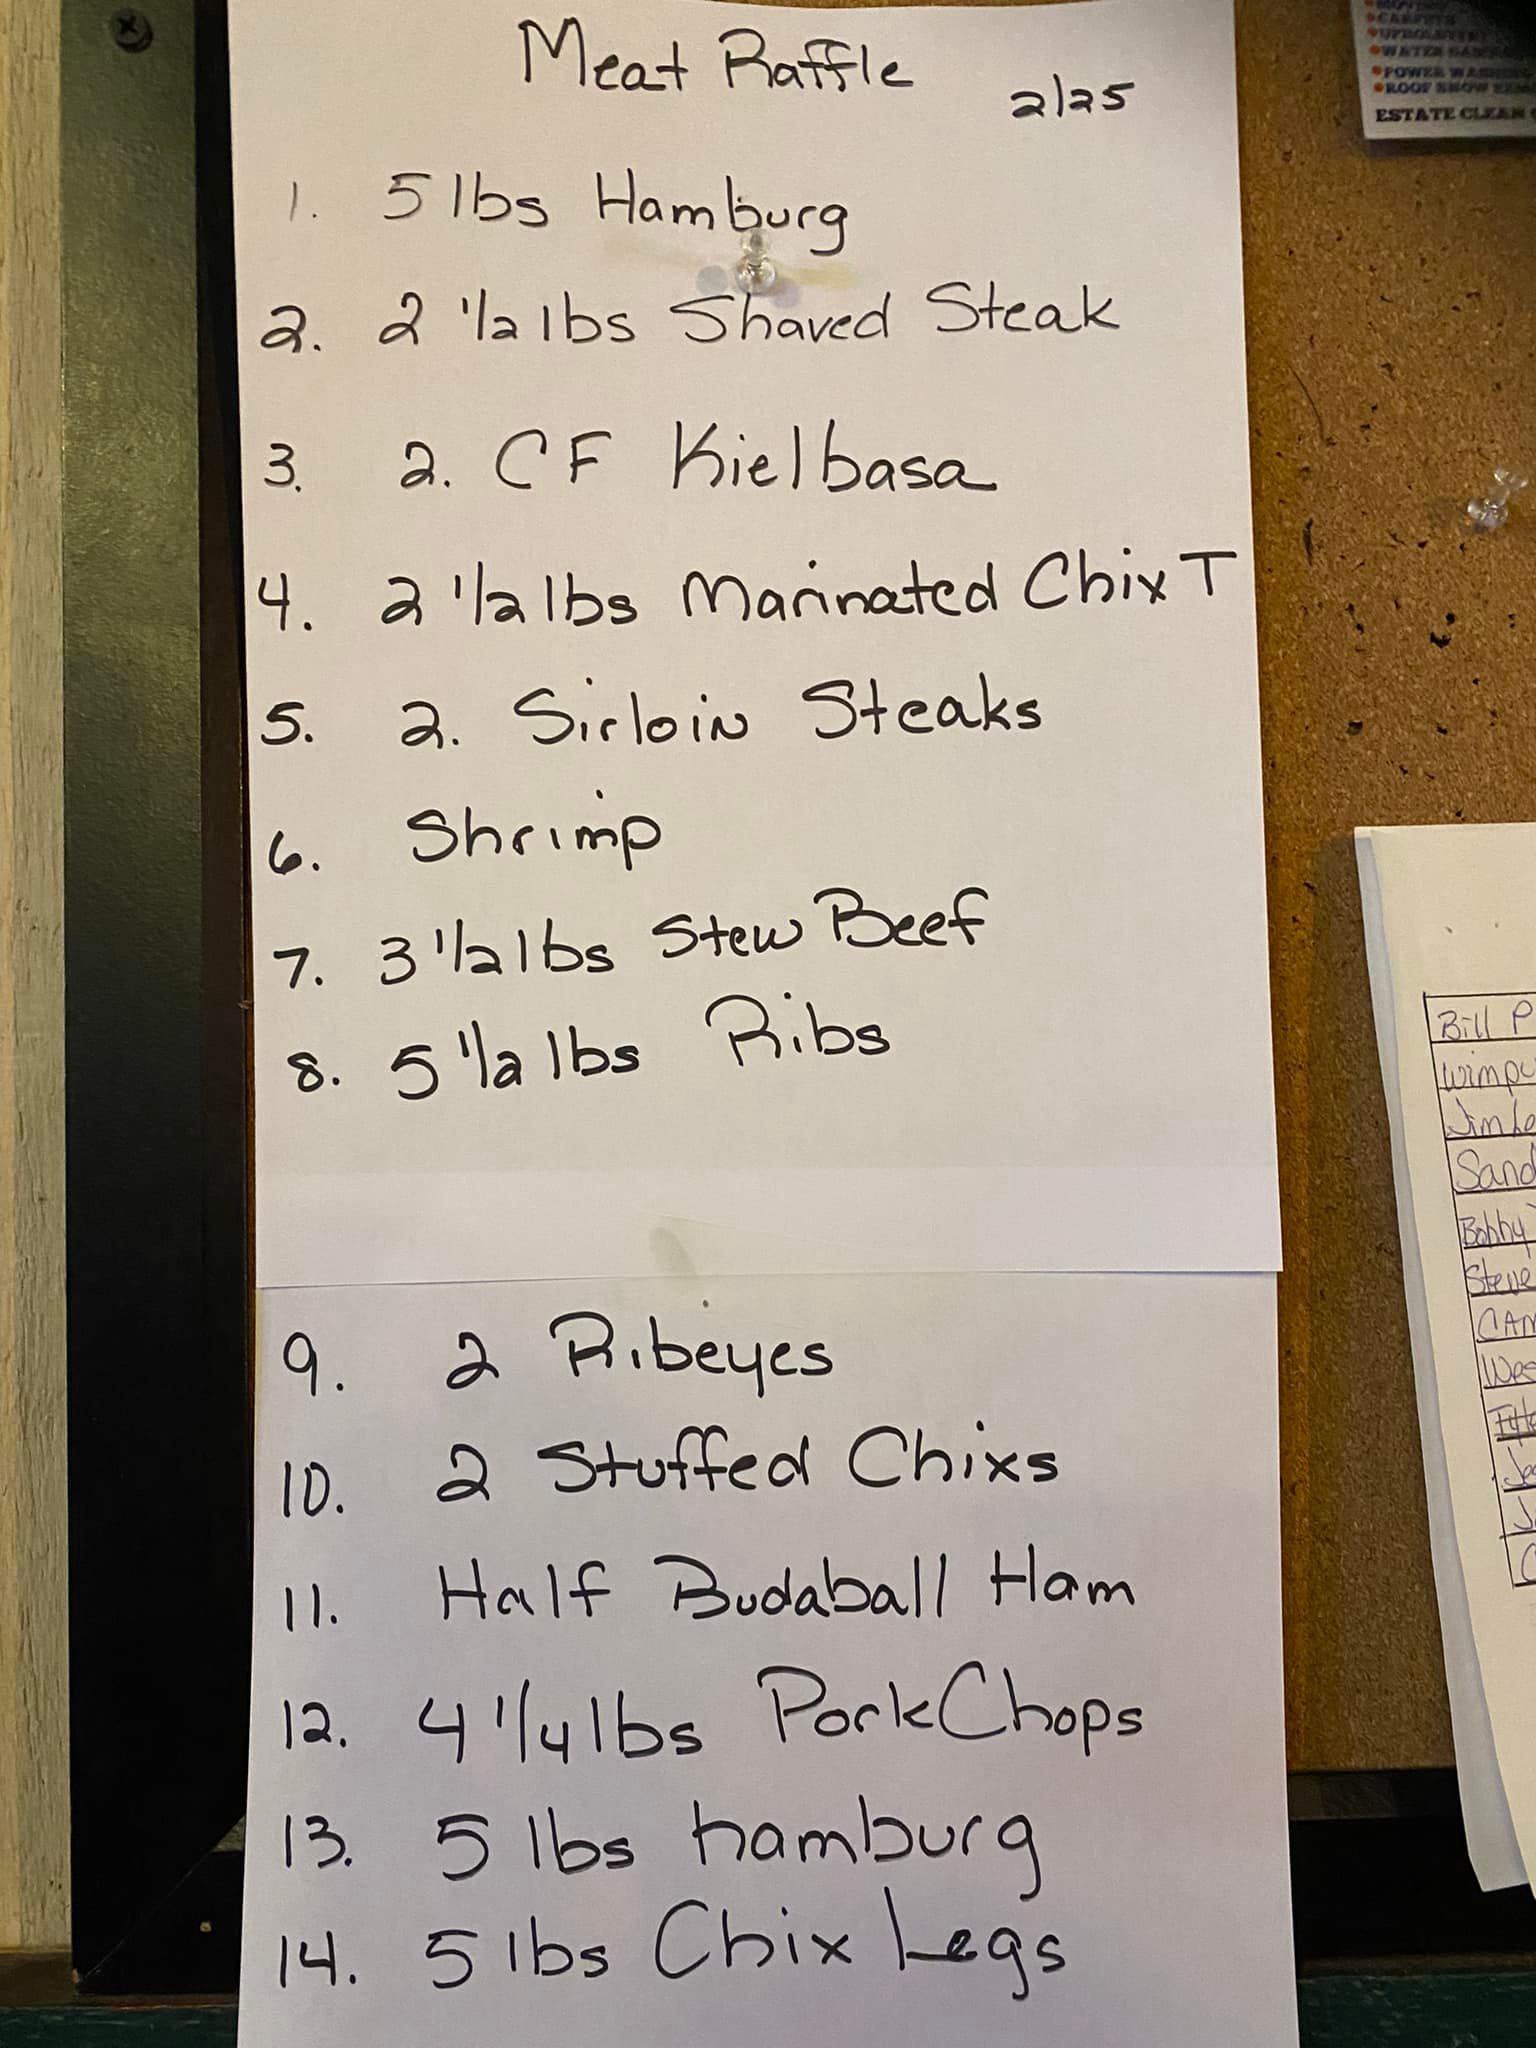 Meat Raffle
2/25
1. 5 lbs Hamburg
2. 2 1/2 lbs Shaved Steak
3. 2. CF Kielbasa
4. 2 1/2 lbs Marinated Chix T
5. 2. Sirloin Steaks
6. Shrimp
7. 3 1/2 lbs Stew Beef
8. 5 1/2 lbs Ribs
9. 2 Ribeyes
10. 2 Stuffed Chixs
11. Half Budaball Ham
12. 4 1/4 lbs Pork Chops
13. 5 lbs hamburg
14. 5 lbs Chix Legs
CARPETS
UPHOLSTERY
WATER
POWER
ROOF SNOW
ESTATE CLEAN
Bill P
Jim
Bobby
Steve